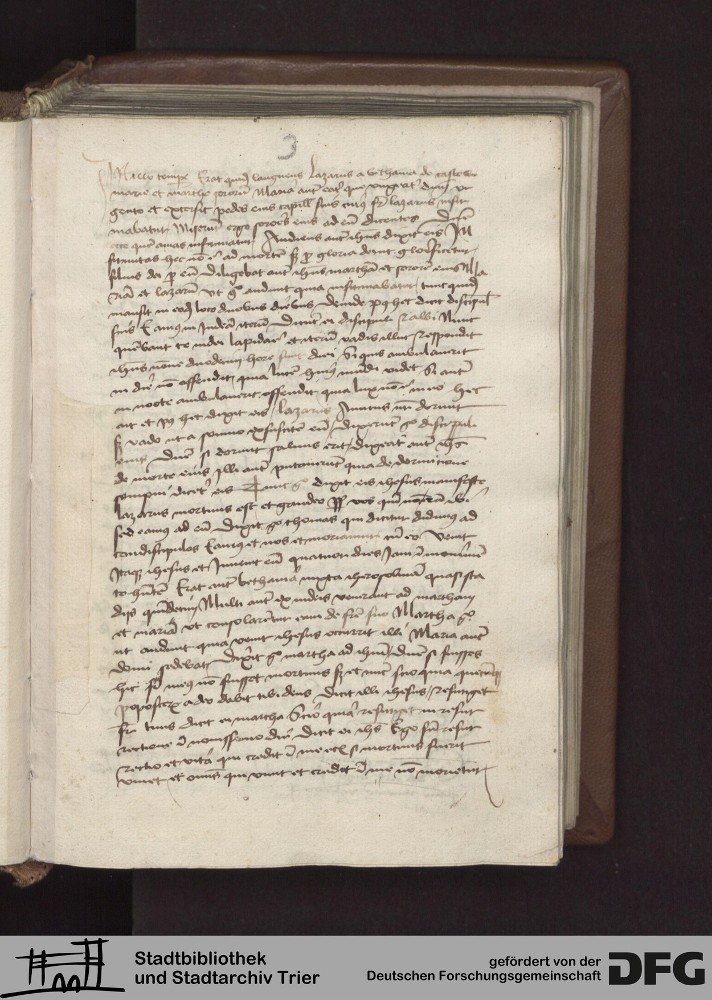 3
Illo tempore Erat quidam languens Lazarus a bethania de castello
marie et marthe sororum Maria aut erat que unxerat dnm un
gento et extersit pedes eius capillis suis cuius fr lazarus infir
mabatur Miserunt ergo sorores eius ad eu dicentes Dne
ecce quem amas infirmatur Audiens aut ihus dixit eis In
firmitas hec no e ad mortem sz pro gloria dei ut glorificetur
filius dei per eu Diligebat aut ihus martham et sororem eius Ma
riam et lazarum ut g audivit quia infirmabatur tunc quidem
mansit in eodem loco duobus diebus Deinde post hec dicit discipulis
suis Eamus in Iudeam iterum Dicunt ei discipuli Rabbi Nunc
querebant te iudei lapidare et iterum vadis illuc Respondit
ihus nonne duodecim hore sunt diei Si quis ambulaverit
in die no offendit quia lucem huius mundi videt Si aut
in nocte ambulaverit offendit quia lux no e in eo hec
ait et post hec dixit eis lazarus Amicus nr dormit
sz vado ut a sompno exsuscitem eu Dixerunt g discipuli
eius Dne si dormit salvus erit Dixerat aut ihs
de morte eius Illi aut putaverunt quia de dormitione
sompni diceret eis Tunc g dixit eis ihesus manifeste
lazarus mortuus est et gaudeo propter vos qm non eram ibi
sed eamus ad eu Dixit g thomas qui dicitur didimus ad
condiscipulos Eamus et nos et moriamur cu eo Venit
itaque ihesus et Invenit eu quatuor dies Iam i monumen
to habentem Erat aut bethania iuxta iherosolimam quasi sta
dijs quindecim Multi aut ex iudeis venerant ad martham
et mariam ut consolarentur eam de fre suo Martha g
ut audivit quia venit ihesus occurrit illi Maria aut
domi sedebat Dixit g martha ad ihm Dne si fuisses
hic fr meus no fuisset mortuus sz et nunc scio quia quecumque
poposceris a deo dabit tibi deus Dicit illi ihesus resurget
fr tuus dicit ei martha Scio quia resurget in resur
rectione i novissimo die Dicit ei ihs Ego sum resur
rectio et vita qui credit i me etsi mortuus fuerit
vivet et omnis qui vivit et credit i me no morietur
Stadtbibliothek
und Stadtarchiv Trier
gefördert von der
Deutschen Forschungsgemeinschaft
DFG